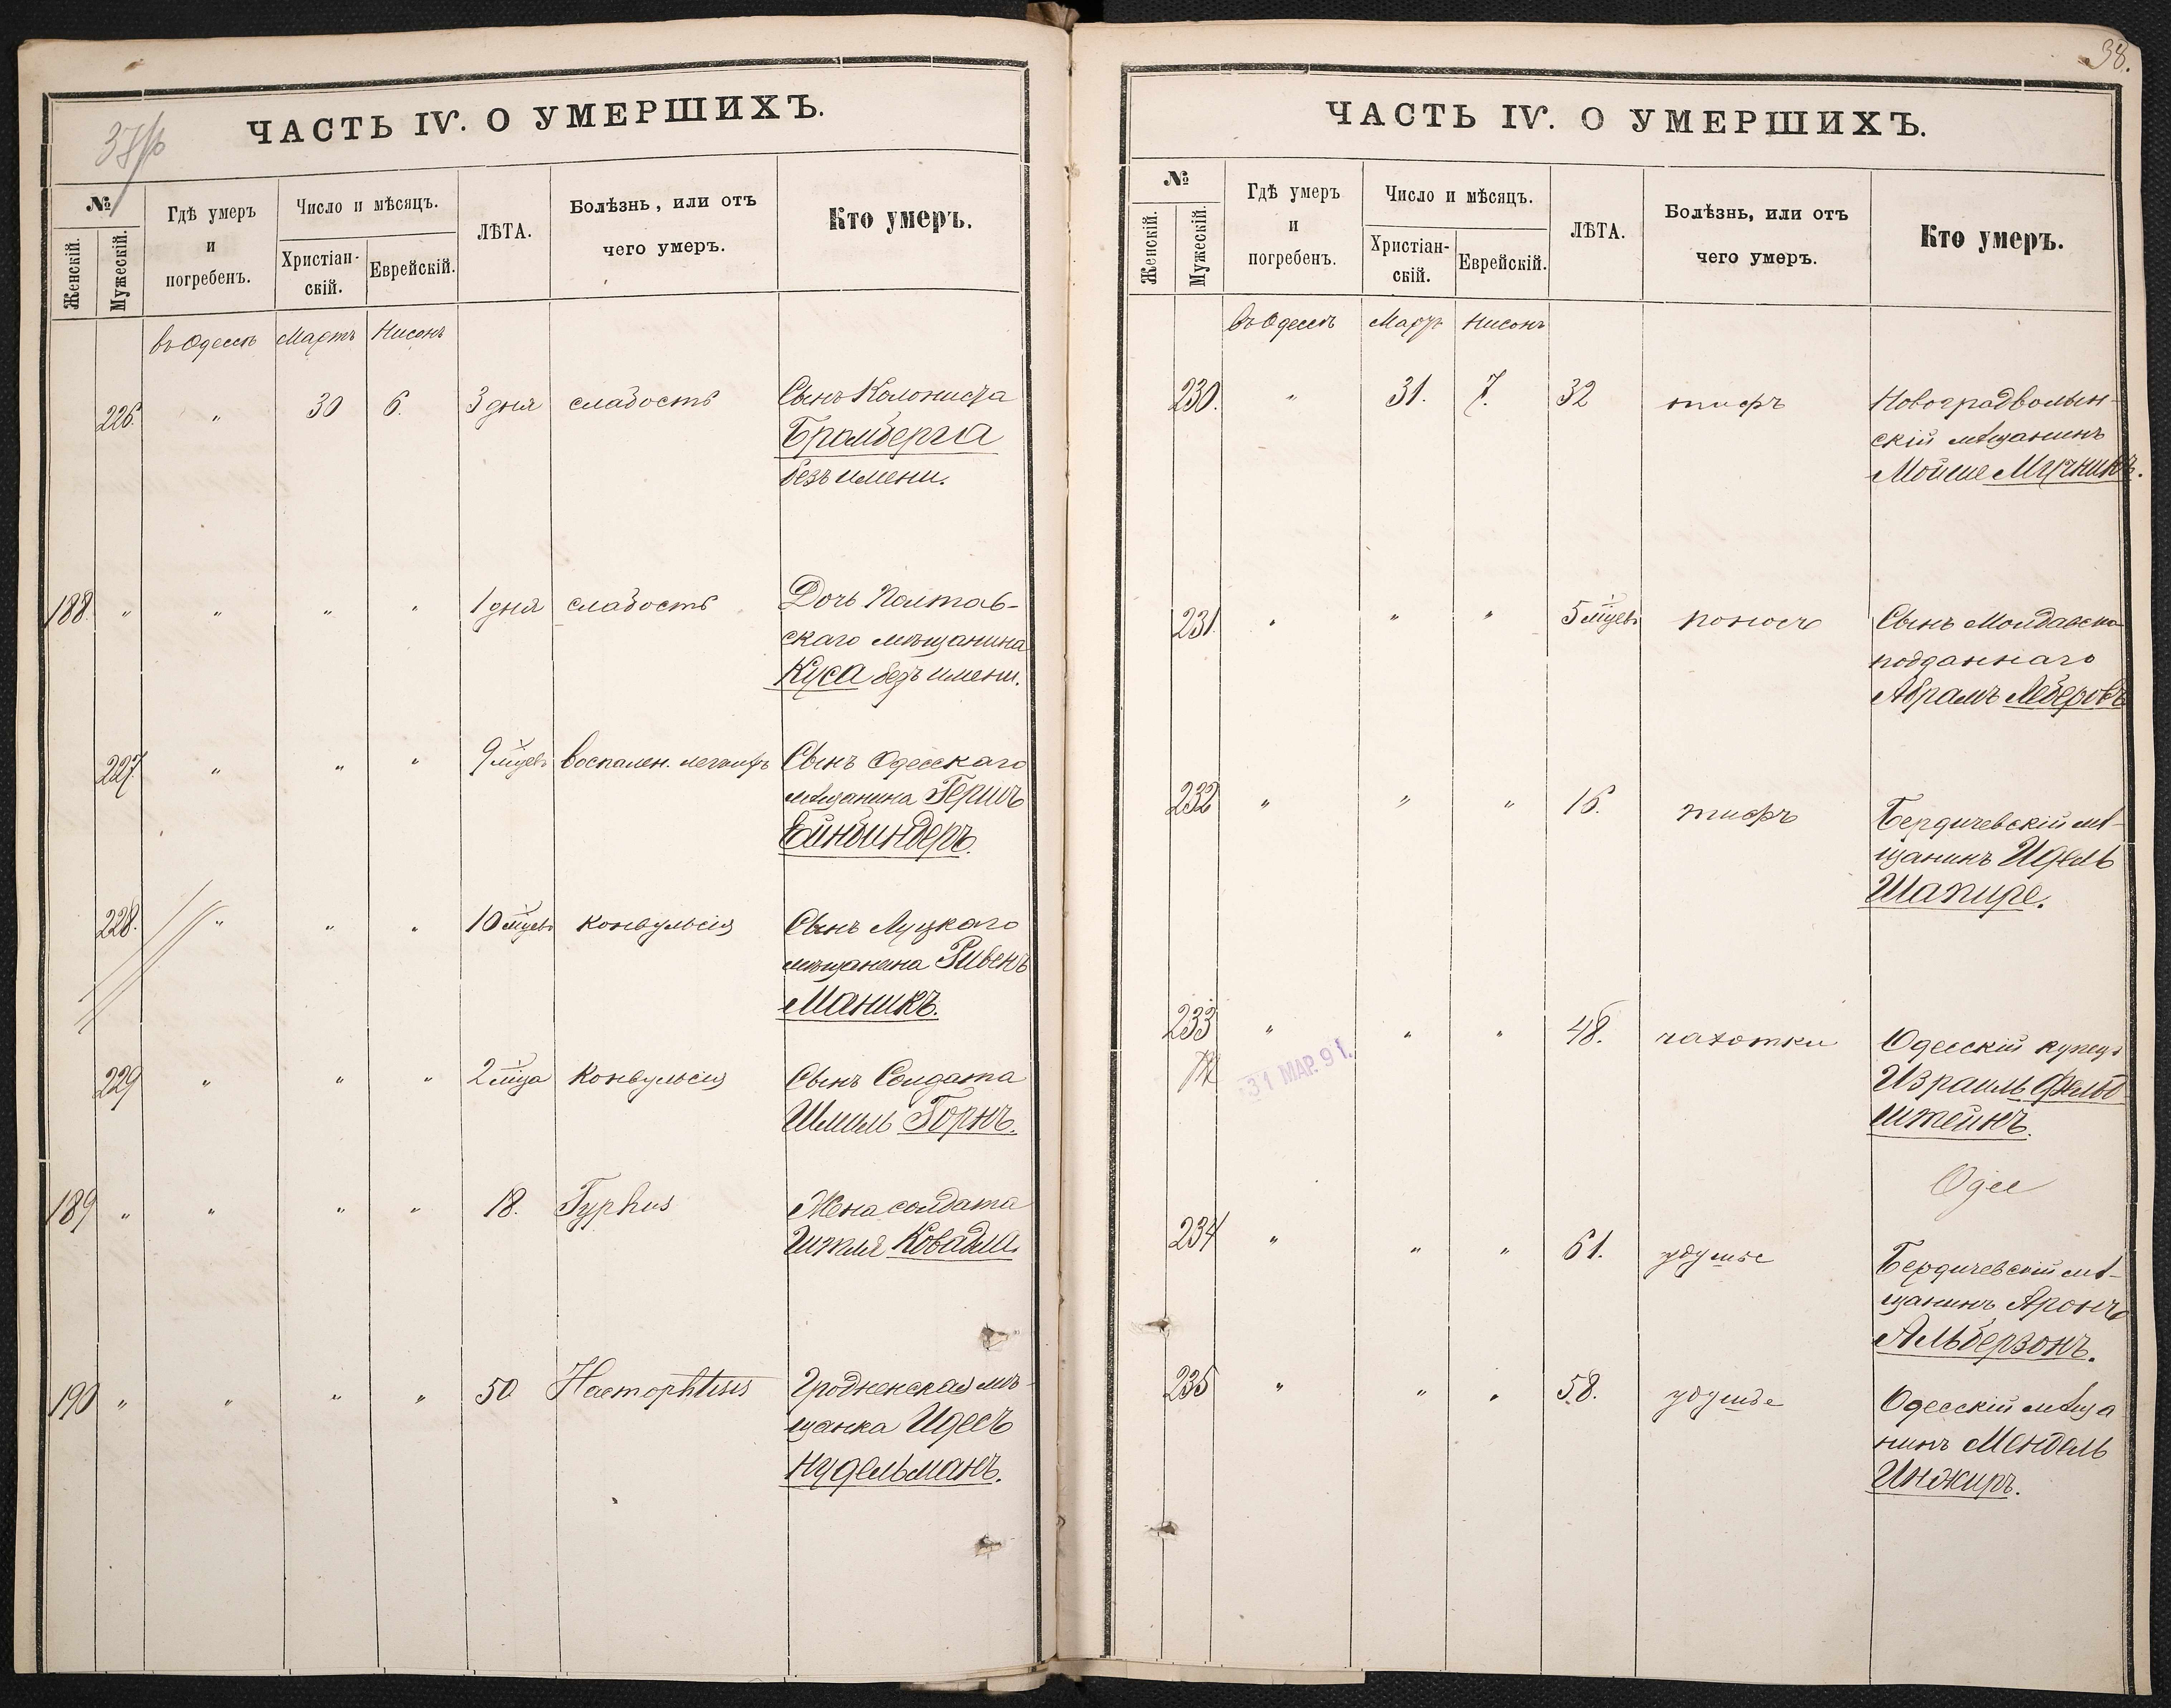 37/b
ЧАСТЬ IV. О УМЕРШИХЪ.
№
Женскій.
Мужескій.
Гдѣ умеръ
и
погребенъ.
Число и мѣсяцъ.
Христіан-
скій.
Еврейскій.
ЛѢТА.
Болѣзнь, или отъ
чего умеръ.
Кто умеръ.
въ Одессѣ Мартъ Нисонъ
226. " 30 6. 3 дня слабость Сынъ Колониста
Бромберга
безъ имени.
188. " " " " 1 дня слабость Дочь Полтав-
скаго мѣщанина
Куса безъ имени.
227 " " " 9 мцевъ воспален. легкихъ Сынъ Одесскаго
мѣщанина Гершъ
Ейнбиндеръ.
228. " " " 10 мцевъ конвульсія Сынъ Луцкаго
мѣщанина Ривенъ
Маникъ.
229 " " " 2 мца конвульсія Сынъ Солдата
Шмиль Горнъ.
189 " " " " 18. Typhus Жена солдата
Ковадла.
190 " " " " 50 Haemophtisis Гродненская мѣ-
щанка Идесъ
Нудельманъ.
38.
ЧАСТЬ IV. О УМЕРШИХЪ.
№
Женскій.
Мужескій.
Гдѣ умеръ
и
погребенъ.
Число и мѣсяцъ.
Христіан-
скій.
Еврейскій.
ЛѢТА.
Болѣзнь, или отъ
чего умеръ.
Кто умеръ.
въ Одессѣ Мартъ Нисонъ
230. " 31. 7. 32 тифъ Новоградволын-
скій мѣщанинъ
Мойше Мучникъ.
231. " " " 5 мцевъ поносъ Сынъ Молдавско
подданнаго
Абрамъ Леберовъ
232 " " " 16. тифъ Бердичевскій мѣ-
щанинъ Идель
Шапире.
233 " " " 48. чахотки Одесскій купецъ
31 МАР. 91.
Израиль Фельд-
штейнъ.
Одес
234 " " " 61. удушье Бердичевскій мѣ-
щанинъ Аронъ
Альберзонъ.
235 " " " 58. удушье Одесскій мѣща
нинъ Мендель
Инжиръ.